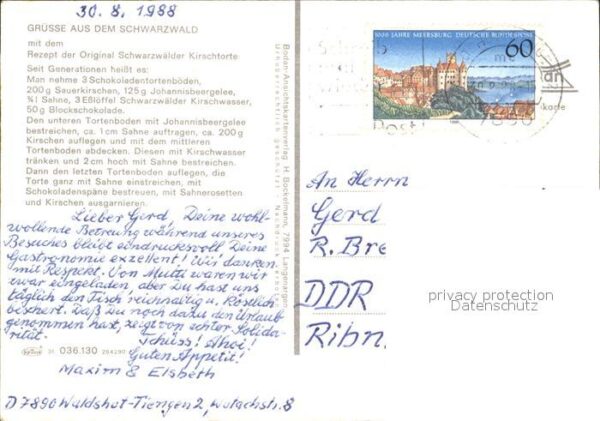 30.8.1988
GRÜSSE AUS DEM SCHWARZWALD
mit dem
Rezept der Original Schwarzwälder Kirschtorte
Seit Generationen heißt es:
Man nehme 3 Schokoladentortenböden,
200 g Sauerkirschen, 125 g Johannisbeergelee,
¾ l Sahne, 3 Eßlöffel Schwarzwälder Kirschwasser,
50 g Blockschokolade.
Den unteren Tortenboden mit Johannisbeergelee
bestreichen, ca. 1 cm Sahne auftragen, ca. 200 g
Kirschen auflegen und mit dem mittleren
Tortenboden abdecken. Diesen mit Kirschwasser
tränken und 2 cm hoch mit Sahne bestreichen.
Dann den letzten Tortenboden auflegen, die
Torte ganz mit Sahne einstreichen, mit
Schokoladenspäne bestreuen, mit Sahnerosetten
und Kirschen ausgarnieren.
Lieber Gerd, Deine wohl-
wollende Betreuung während unseres
Besuches bleibt eindrucksvoll. Deine
Gastronomie exzellent! Wir danken
mit Respekt. Von Mutti waren wir
zwar eingeladen, aber Du hast uns
täglich den Tisch reichhaltig u. köstlich
beschert. Daß Du noch dazu den Urlaub
genommen hast, zeigt von echter Solida-
rität. Tschüss! Ahoi!
Guten Appetit!
Maxim & Elsbeth
31 036.130
D 7890 Waldshut-Tiengen 2, Wutachstr. 8
Boden-Ansichtskartenverlag H. Bockelmann, 7994 Langenargen
Urheberrechtlich geschützt
1000 JAHRE MEERSBURG DEUTSCHE BUNDESPOST
60
1988
Post
7890
karte
An Herrn
Gerd
R. Bre
DDR
Ribn
privacy protection
Datenschutz